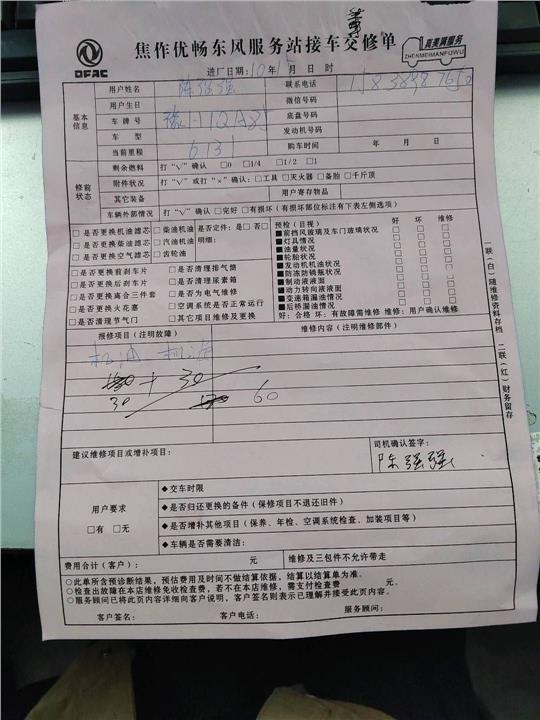 DFAC
焦作优畅东风服务站接车交修单
真美满服务
ZHENMEIMANFUWU
进厂日期:10年 月 日 时
基本信息
用户姓名 陈强强 联系电话
用户生日 微信号码
车牌号 底盘号码
车型 发动机号码
当前里程 6131 购车时间 年 月 日
修前状态
剩余燃料 打“√”确认 □0 □1/4 □1/2 □1
附件状况 打“√”或打“×”确认:□工具 □灭火器 □备胎 □千斤顶
其它装备 用户寄存物品
车辆外部情况 打“√”确认 □完好 □有损坏(有损坏部位标注有下表左侧选项)
□是否更换机油滤芯 □柴油机油 是否定件:是□ 否□
□是否更换柴油滤芯 □汽油机油 明细:
□是否更换空气滤芯 □齿轮油
□是否更换前刹车片 □是否清理排气筒
□是否更换后刹车片 □是否清理尿素箱
□是否更换离合三件套 □是否为电气维修
□是否更换火花塞 □空调系统是否正常运行
□是否清理节气门 □其它项目维修及更换
预检(目视) 好 坏 维修
■前挡风玻璃及车门玻璃状况 □ □ □
■灯具情况 □ □ □
■油量状况 □ □ □
■轮胎状况 □ □ □
■发动机机油状况 □ □ □
■防冻防锈瓶状况 □ □ □
■制动液液面 □ □ □
■动力转向液液面 □ □ □
■变速箱漏油情况 □ □ □
■后桥漏油情况 □ □ □
好:合格 坏:有故障需维修 维修:用户确认维修
报修项目(注明故障) 维修内容(注明维修部件)
机油 机滤
+ 30
30 60
建议维修项目或增补项目: 司机确认签字:
陈强强
用户要求
□有 □无
◆交车时限
◆是否归还更换的备件(保修项目不退还旧件)
◆是否增补其他项目(保养、年检、空调系统检查、加装项目等)
◆车辆是否需要清洁:
费用合计(客户): 元 维修及三包件不允许带走
○此单所含预诊断结果,预估费用及时间不做结算依据,结算以结算单为准。
○检查出故障在本店维修免收检查费,若不在本店维修,需支付检查费 元。
○服务顾问已将此页内容详细向客户说明,客户签名则表示已理解并接受此页内容。
客户签名: 客户电话: 服务顾问:
一联(白)随维修资料存档 二联(红)财务留存